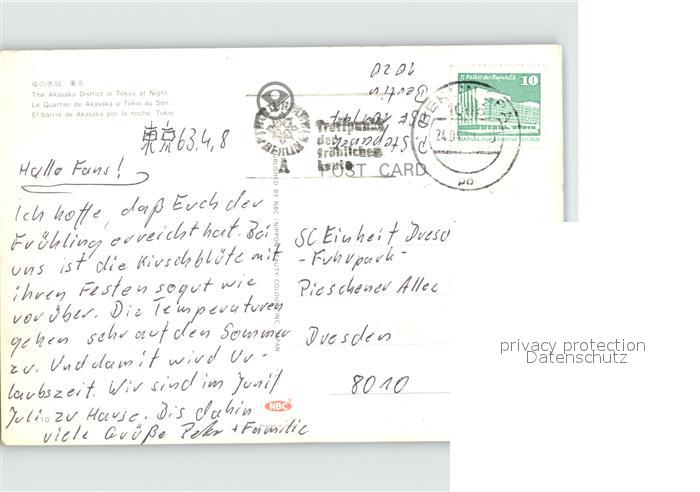 夜の赤坂 東京
The Akasaka District in Tokyo at Night.
Le Quartier de Akasaka a Tokio au Soir.
El barrio de Akasaka por la noche. Tokio
東京 63.4.8
Hallo Fans!
Ich hoffe, daß Euch der
Frühling erreicht hat. Bei
uns ist die Kirschblüte mit
ihren Festen so gut wie
vorüber. Die Temperaturen
gehen sehr auf den Sommer
zu. Und damit wird Ur-
laubszeit. Wir sind im Juni/
Juli zu Hause. Bis dahin
viele Grüße Peter + Familie
NBC
BERLIN
Treffpunkt
der
fröhlichen
Leute
A
POST CARD
Palast der Republik
10
Berlin
1020
SC Einheit Dresd
- Fuhrpark -
Pieschener Allee
Dresden
8010
privacy protection
Datenschutz